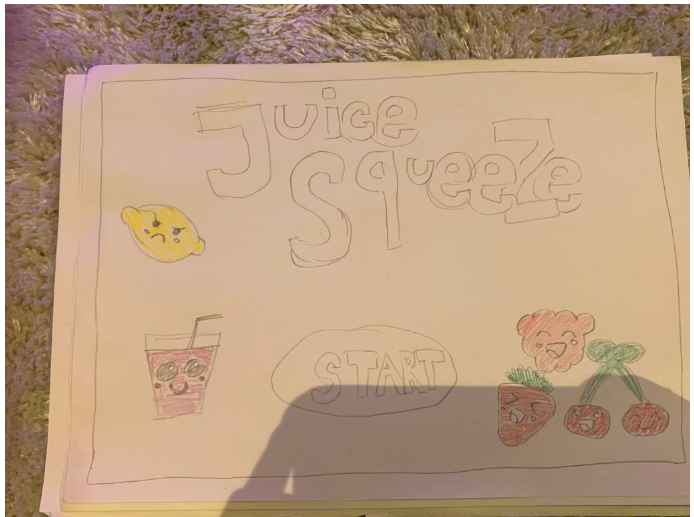 Juice
SqueeZe
START